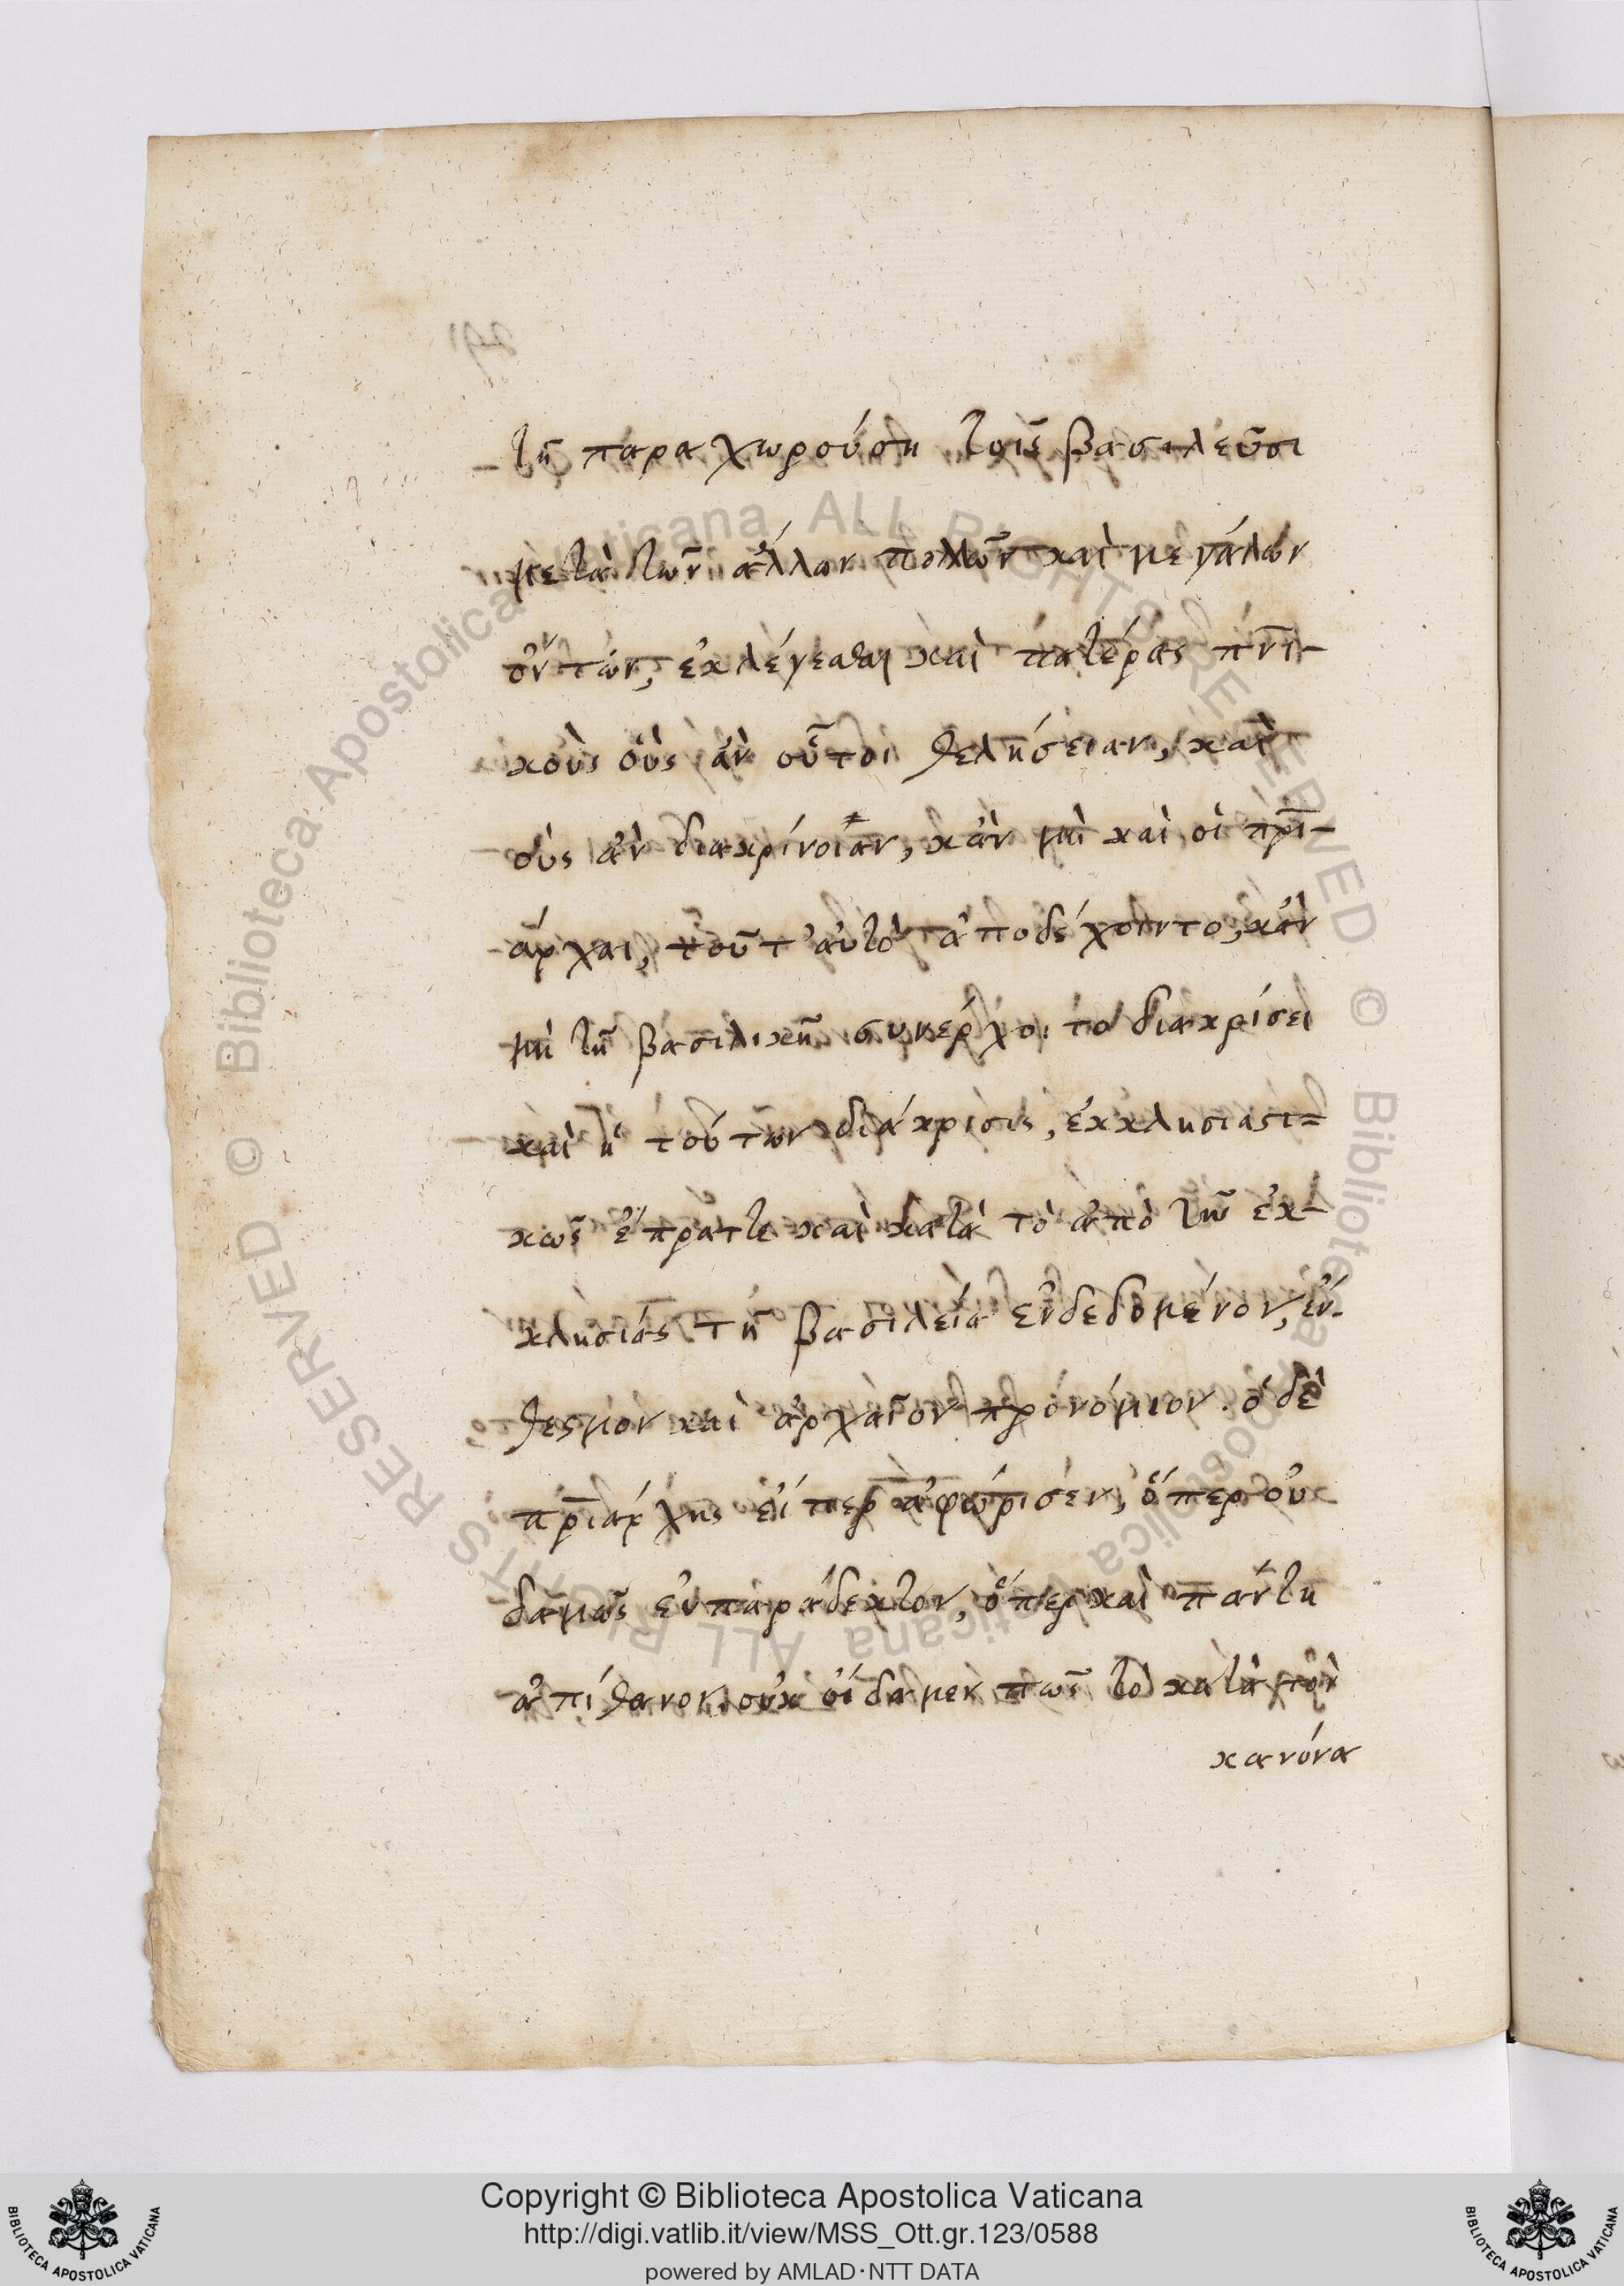 τῆ παραχωρούση τοῖς βασιλεῦσι
μετὰ τῶν ἄλλων πολλῶν καὶ μεγάλων
ὄντων, ἐκλέγεσθαι καὶ πατέρας πνι-
κοὺς οὓς ἂν οὗτοι θελήσειαν, καὶ
οὓς ἂν διακρίνοιαν, κἂν μὴ καὶ οἱ πρι-
άρχαι, τοῦτ' αὐτὸ ἀποδέχοιντο, κἂν
μὴ τῆ βασιλικῆ συνέρχοιτο διακρίσει
καὶ ἡ τούτων διάκρισις, ἐκκλησιαστι=
κῶς ἔπραττε καὶ κατὰ τὸ ἀπὸ τῶν ἐκ-
κλησιάς τῆ βασιλεία ἐνδεδομένον, ἐν-
θεσμον καὶ ἀρχαῖον προνόμιον. ὁ δὲ
πριάρχης εἴπερ ἀφώρισεν, ὅπερ οὐ
δαμῶς εὐπαράδεκτον, ὅπερ καὶ πάντη
ἀπίθανον, οὐκ οἴδαμεν πῶς τὸ κατὰ τὸν
κανόνα
291
Copyright © Biblioteca Apostolica Vaticana
http://digi.vatlib.it/view/MSS_Ott.gr.123/0588
powered by AMLAD·NTT DATA
BIBLIOTECA APOSTOLICA VATICANA
BIBLIOTECA APOSTOLICA VATICANA
© Biblioteca Apostolica Vaticana ALL RIGHTS RESERVED
© Biblioteca Apostolica Vaticana ALL RIGHTS RESERVED